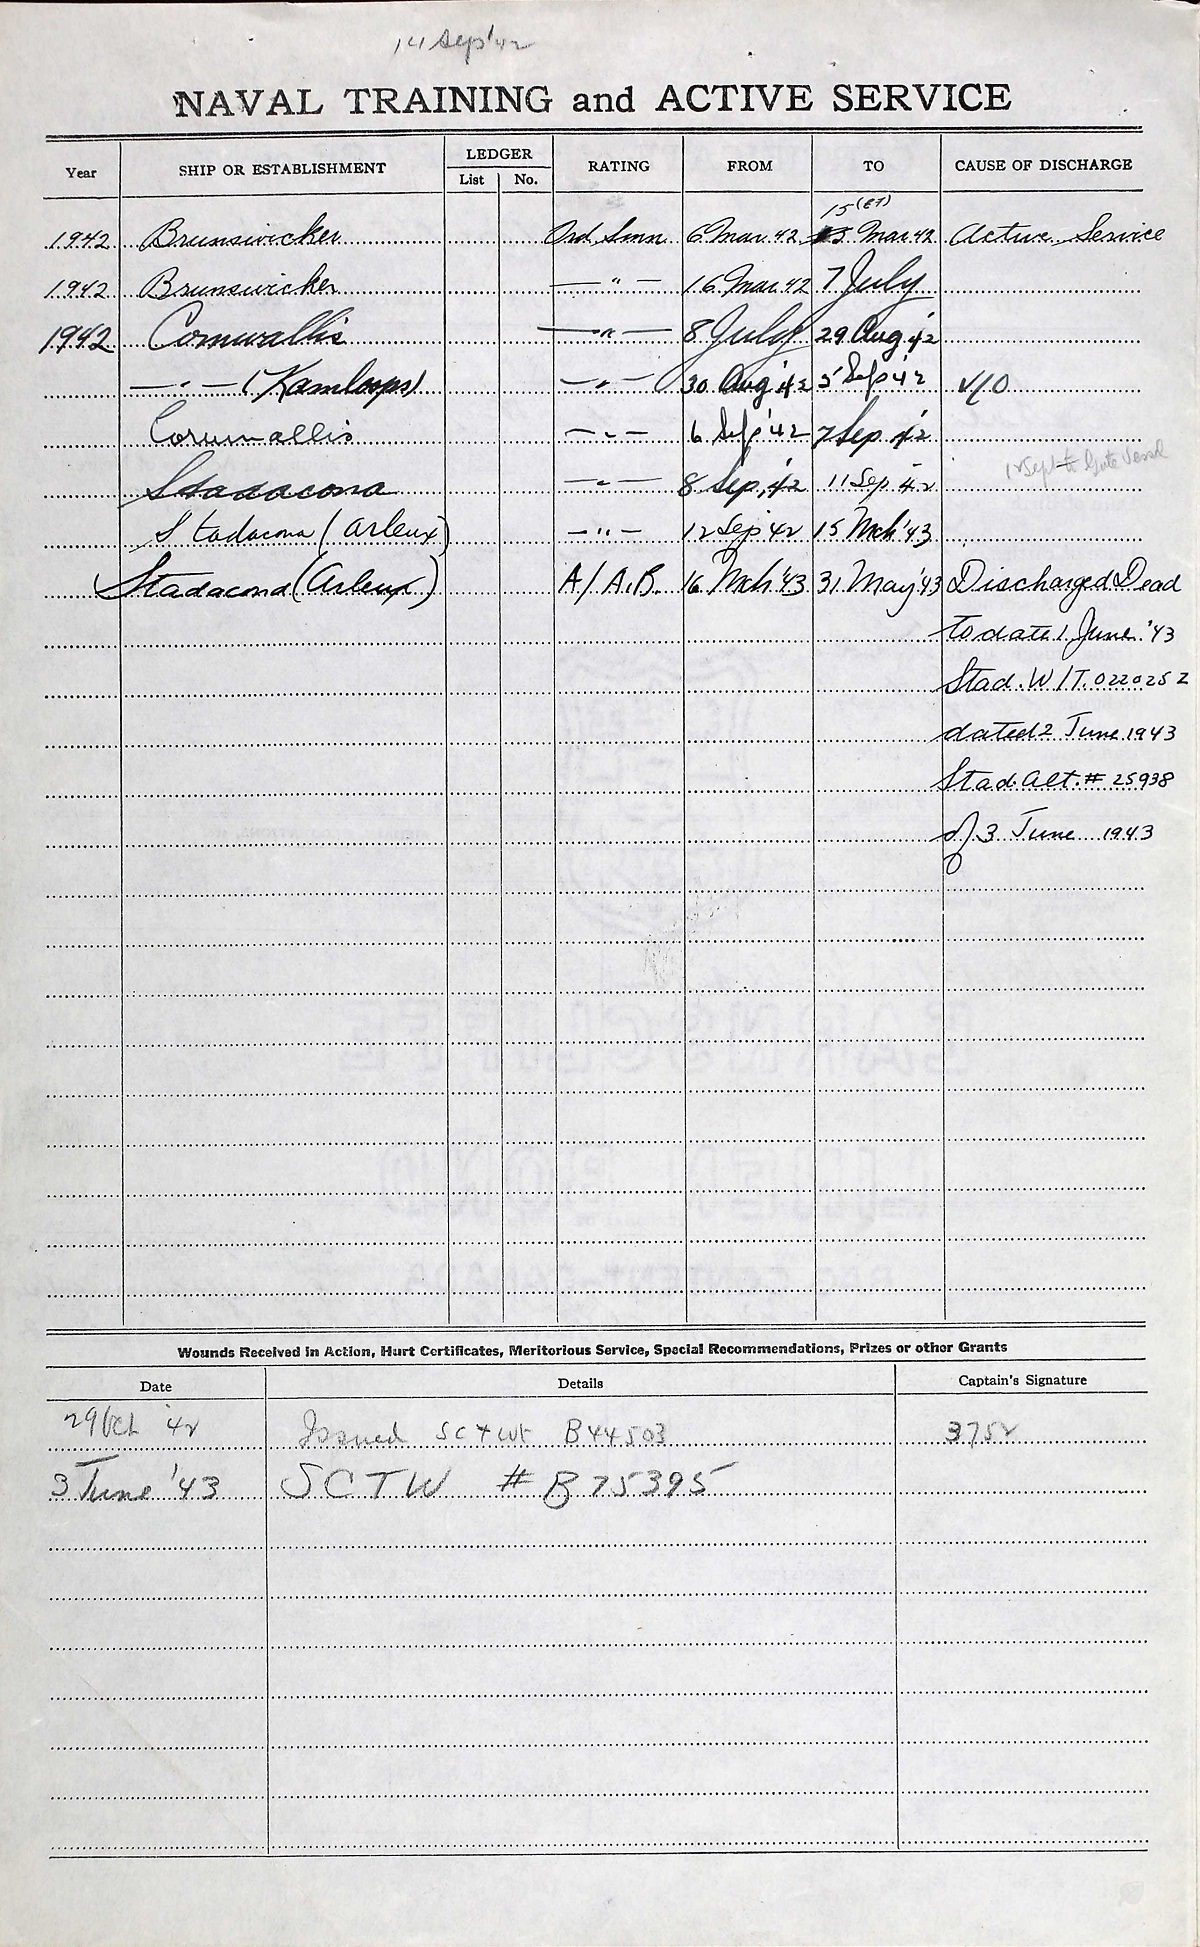 14 Sep '42
NAVAL TRAINING and ACTIVE SERVICE
Year SHIP OR ESTABLISHMENT LEDGER List No. RATING FROM TO CAUSE OF DISCHARGE
15 (ET)
1942 Brunswicker Ord Smn 6 Mar 42 Mar 42 Active Service
1942 Brunswicker — " — 16 Mar 42 7 July
1942 Cornwallis — " — 8 July 29 Aug 42
— " — (Kamloops) — " — 30 Aug '42 5 Sep '42 V/O
Cornwallis — " — 6 Sep '42 7 Sep '42
12 Sept to Gate Vessel
Stadacona — " — 8 Sep, '42 11 Sep '42
Stadacona (Arleux) — " — 12 Sep '42 15 Mch '43
Stadacona (Arleux) A/A.B. 16 Mch '43 31 May '43 Discharged Dead
to date 1 June '43
Stad. W/T. 022025Z
dated 2 June 1943
Stad. Alt. # 25938
of 3 June 1943
Wounds Received in Action, Hurt Certificates, Meritorious Service, Special Recommendations, Prizes or other Grants
Date Details Captain's Signature
29 Oct '42 Issued B44503 3752
3 June '43 SCTW # B75395